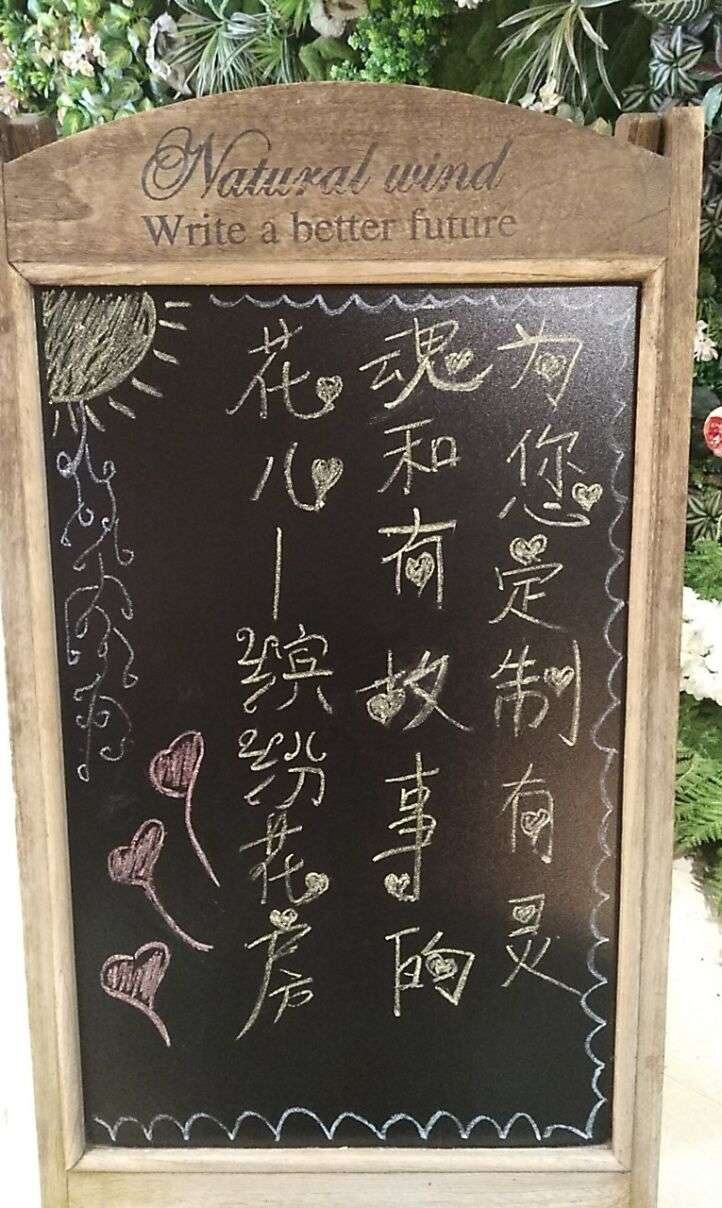 Natural wind
Write a better future
为您定制有灵
魂和有故事的
花儿—缤纷花房